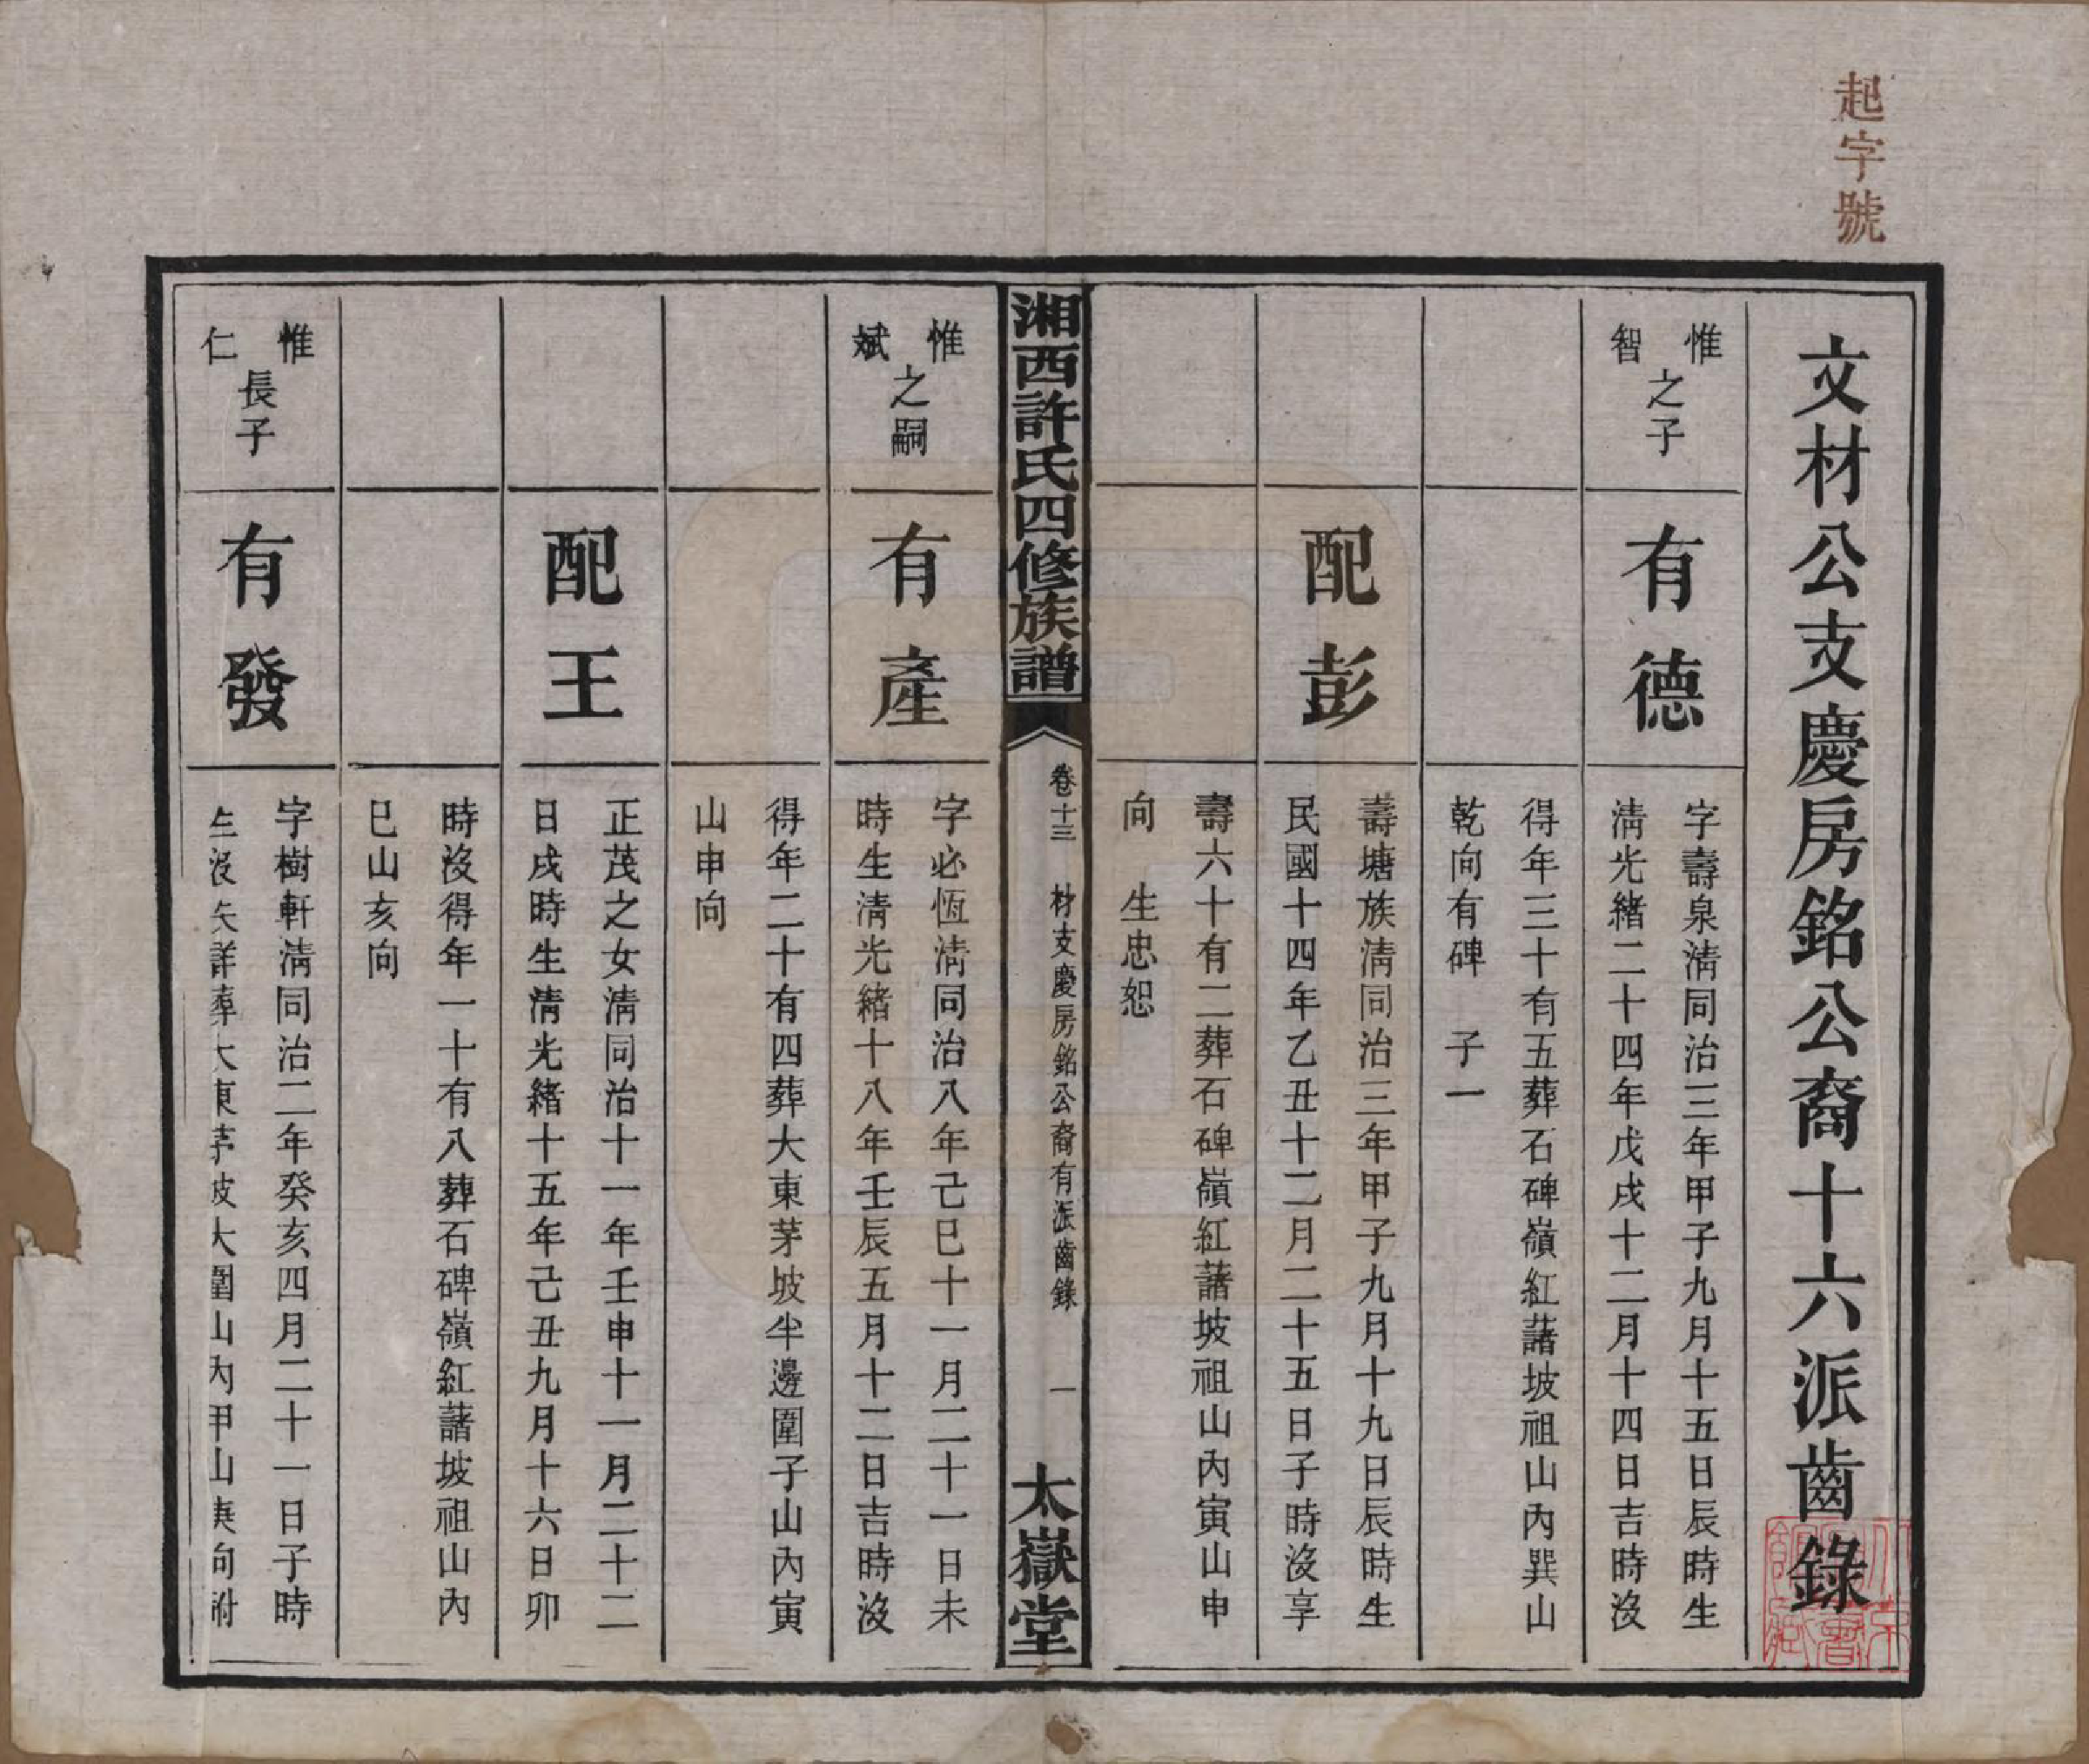 起字號
文材公支慶房銘公裔十六派齒錄
惟智之子
有德
字壽泉淸同治三年甲子九月十五日辰時生
淸光緖二十四年戊戌十二月十四日吉時沒
得年三十有五葬石碑嶺紅藷坡祖山內巽山
乾向有碑　子一
配彭
壽塘族淸同治三年甲子九月十九日辰時生
民國十四年乙丑十二月二十五日子時沒享
壽六十有二葬石碑嶺紅藷坡祖山內寅山申
向　生忠恕
湘西許氏四修族譜
卷十三　材支慶房銘公裔有派齒錄　一
太嶽堂
惟斌之嗣
有產
字必恆淸同治八年己巳十一月二十一日未
時生淸光緖十八年壬辰五月十二日吉時沒
得年二十有四葬大東茅坡半邊圍子山內寅
山申向
配王
正茂之女淸同治十一年壬申十一月二十二
日戌時生淸光緖十五年己丑九月十六日卯
時沒得年一十有八葬石碑嶺紅藷坡祖山內
巳山亥向
惟仁長子
有發
字樹軒淸同治二年癸亥四月二十一日子時
生沒失詳葬大東茅坡大圍山內甲山庚向附